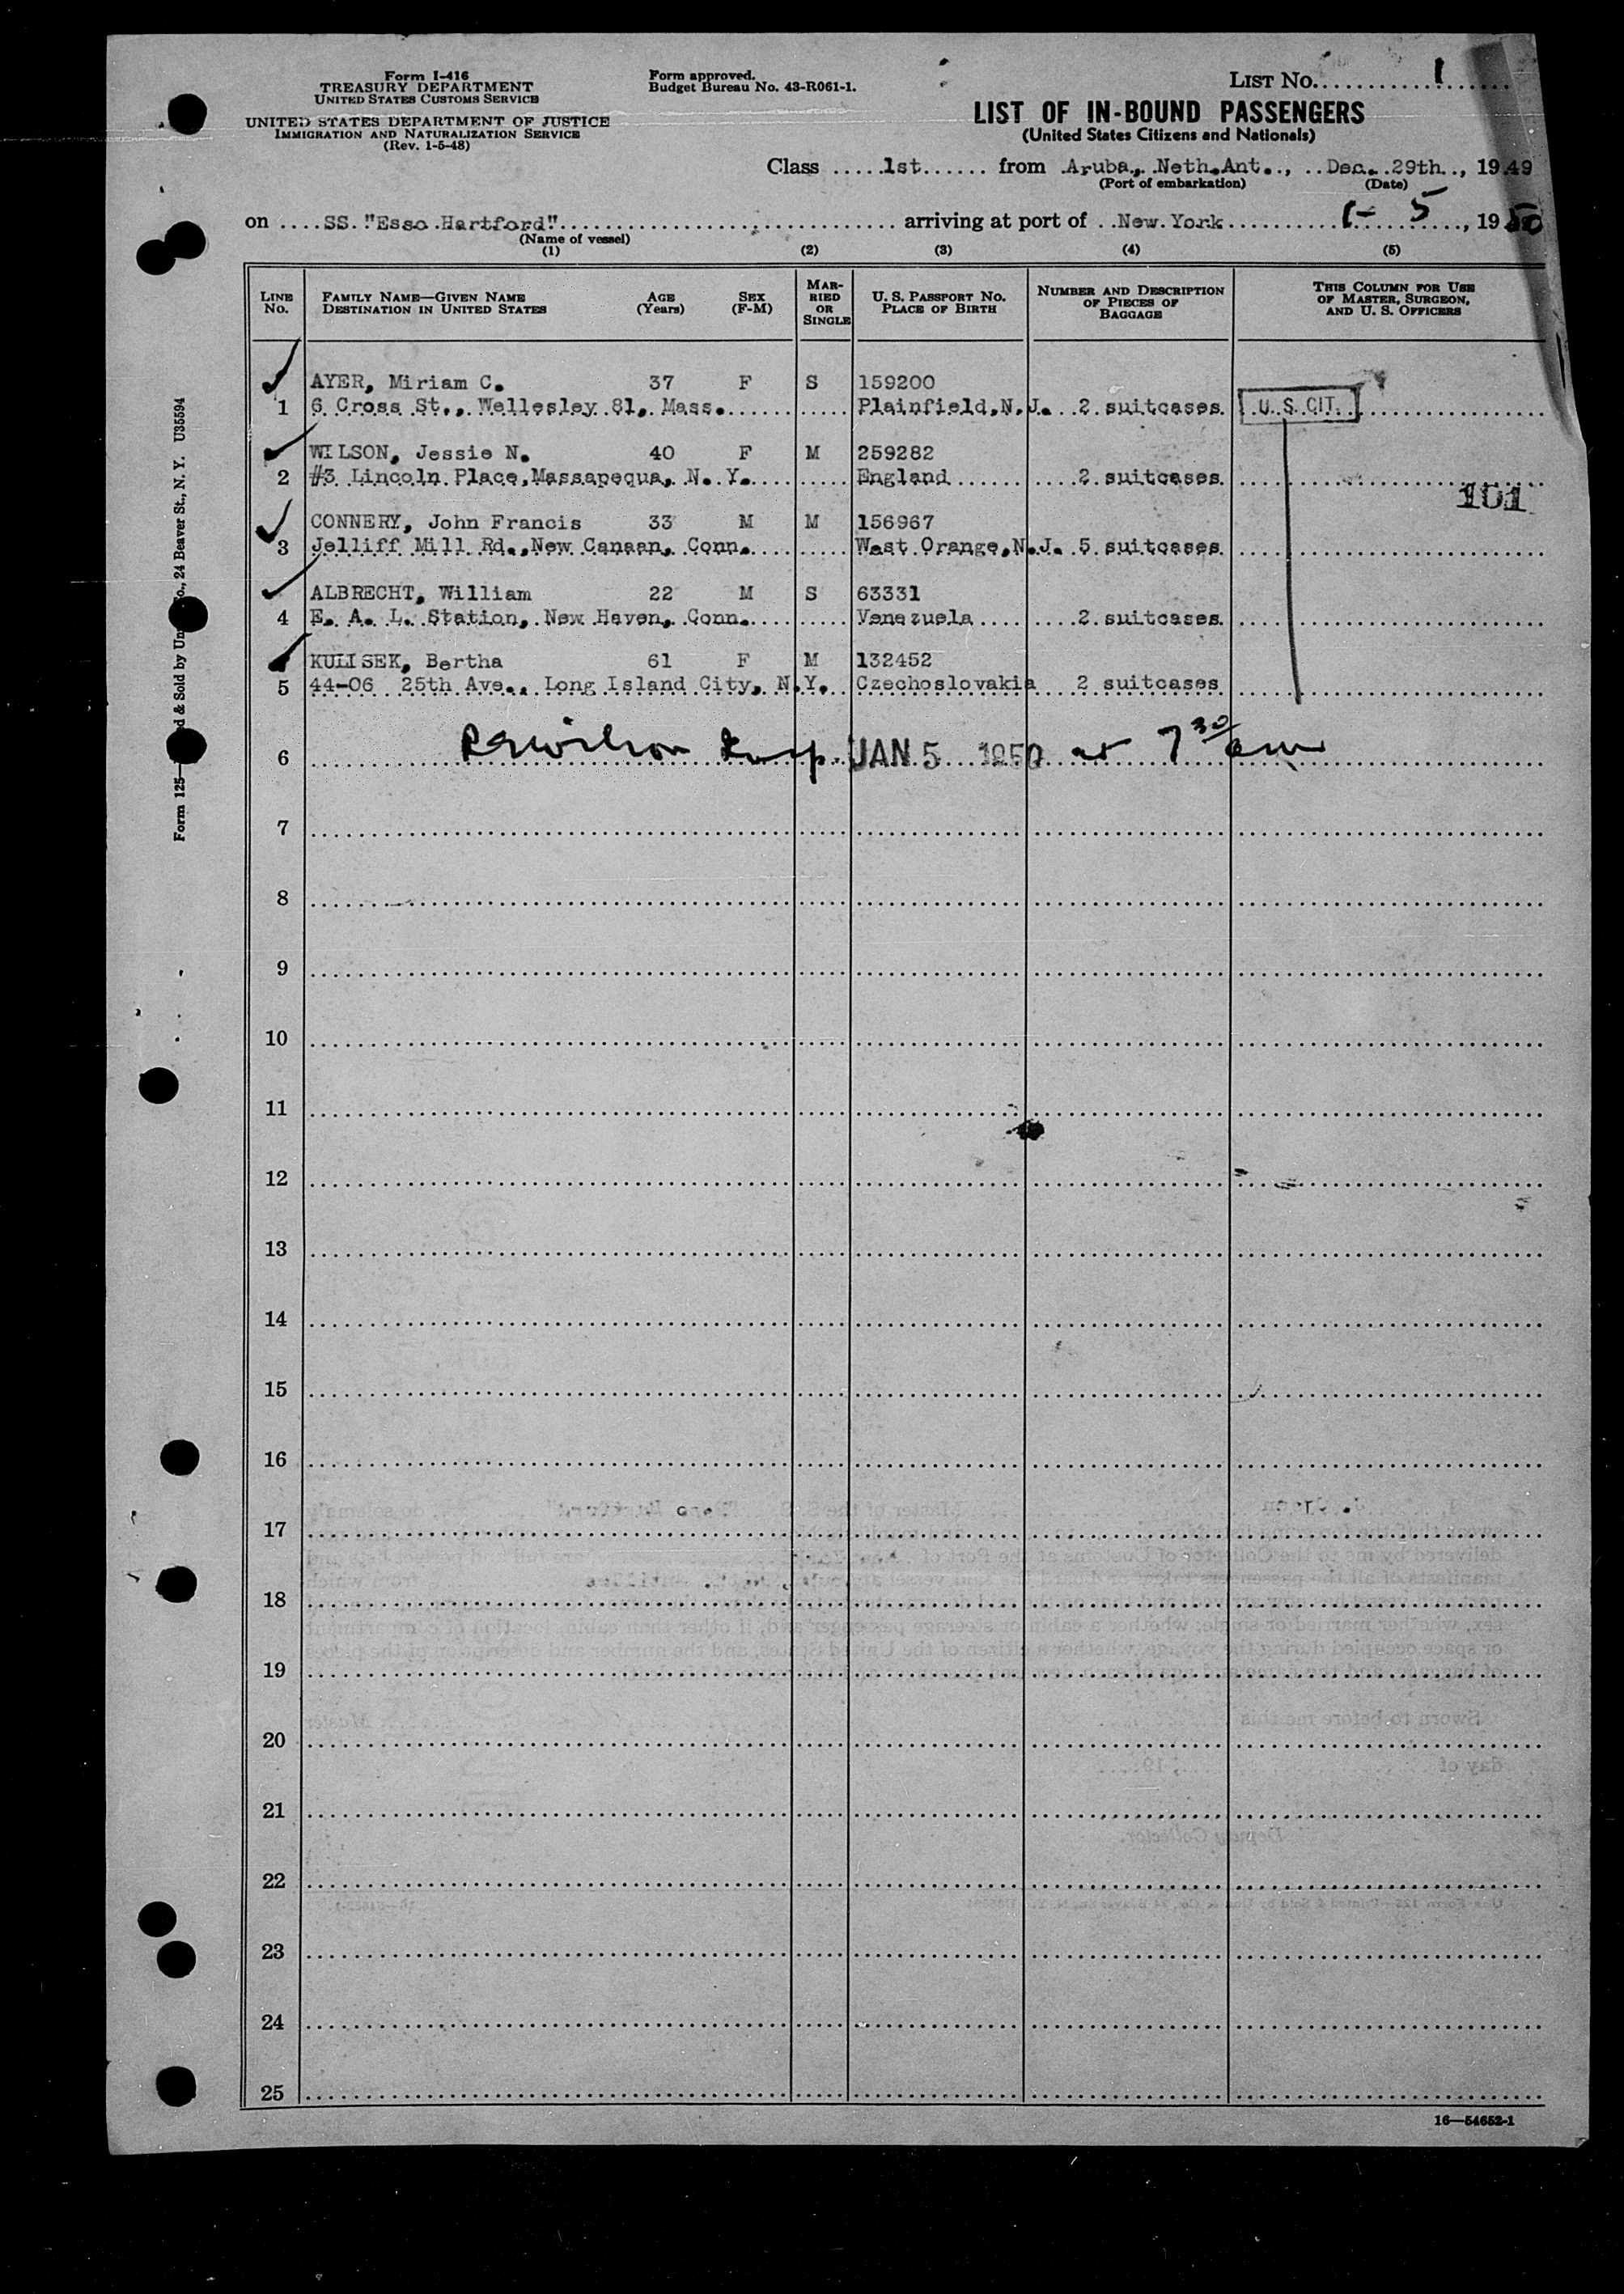 Form I-416
TREASURY DEPARTMENT
UNITED STATES CUSTOMS SERVICE
UNITED STATES DEPARTMENT OF JUSTICE
IMMIGRATION AND NATURALIZATION SERVICE
(Rev. 1-5-48)
Form approved.
Budget Bureau No. 43-R061-1.
LIST No. 1
LIST OF IN-BOUND PASSENGERS
(United States Citizens and Nationals)
Class 1st from Aruba, Neth.Ant., Dec. 29th, 1949
(Port of embarkation) (Date)
on SS. "Esso Hartford" arriving at port of New York 1-5, 1950
(Name of vessel)
(1) (2) (3) (4) (5)
LINE No. FAMILY NAME—GIVEN NAME DESTINATION IN UNITED STATES AGE (Years) SEX (F-M) MARRIED OR SINGLE U. S. PASSPORT No. PLACE OF BIRTH NUMBER AND DESCRIPTION OF PIECES OF BAGGAGE THIS COLUMN FOR USE OF MASTER, SURGEON, AND U. S. OFFICERS
AYER, Miriam C. 37 F S 159200
1 6 Cross St., Wellesley 81, Mass. Plainfield, N.J. 2 suitcases U. S. CIT.
WILSON, Jessie N. 40 F M 259282
2 #3 Lincoln Place, Massapequa, N. Y. England 2 suitcases
101
CONNERY, John Francis 33 M M 156967
3 Jelliff Mill Rd., New Canaan, Conn. West Orange, N.J. 5 suitcases
ALBRECHT, William 22 M S 63331
4 E. A. L. Station, New Haven, Conn. Venezuela 2 suitcases
KULISEK, Bertha 61 F M 132452
5 44-06 25th Ave., Long Island City, N.Y. Czechoslovakia 2 suitcases
6 JAN 5 1950 at 7 30
7
8
9
10
11
12
13
14
15
16
17
18
19
20
21
22
23
24
25
16—54652-1
Form 125— d & Sold by Un o., 24 Beaver St., N. Y. U35594